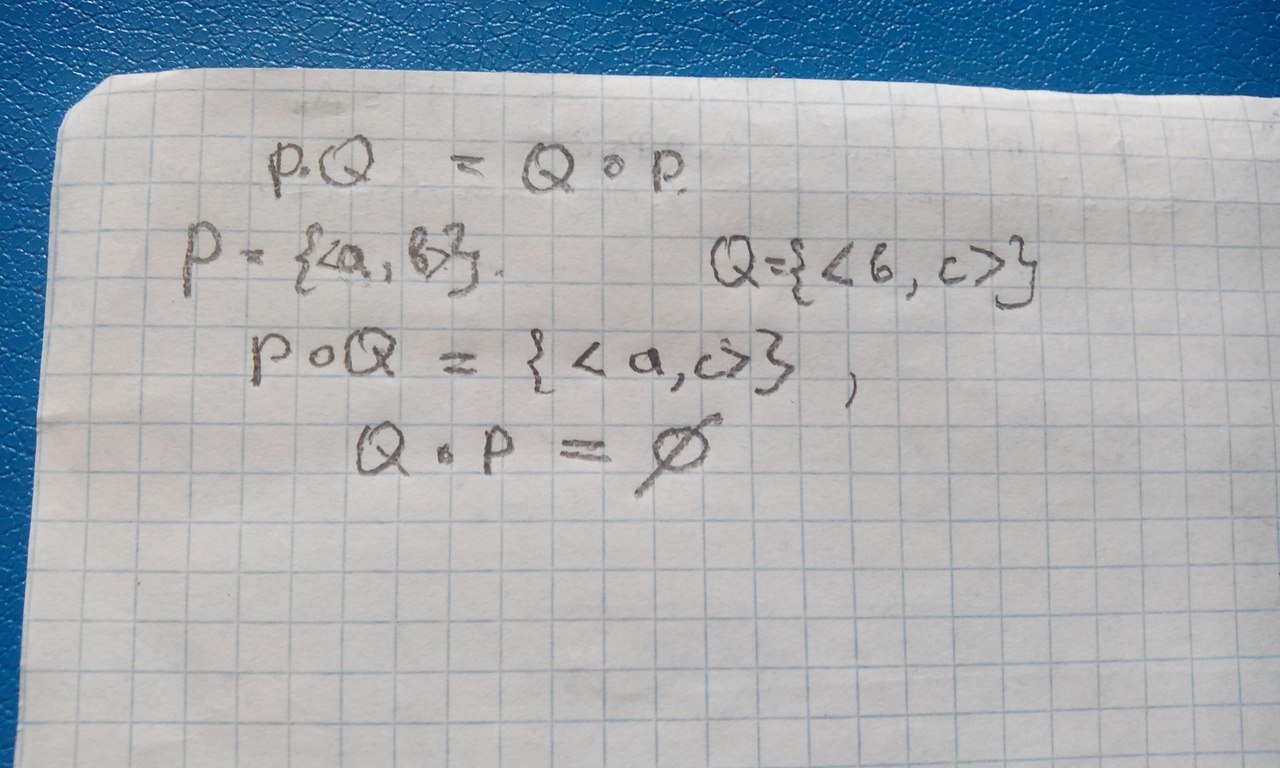 P∘Q = Q ∘ P
P = {<a, b>}. Q={<b, c>}
P∘Q = {<a, c>} ,
Q ∘ P = ∅